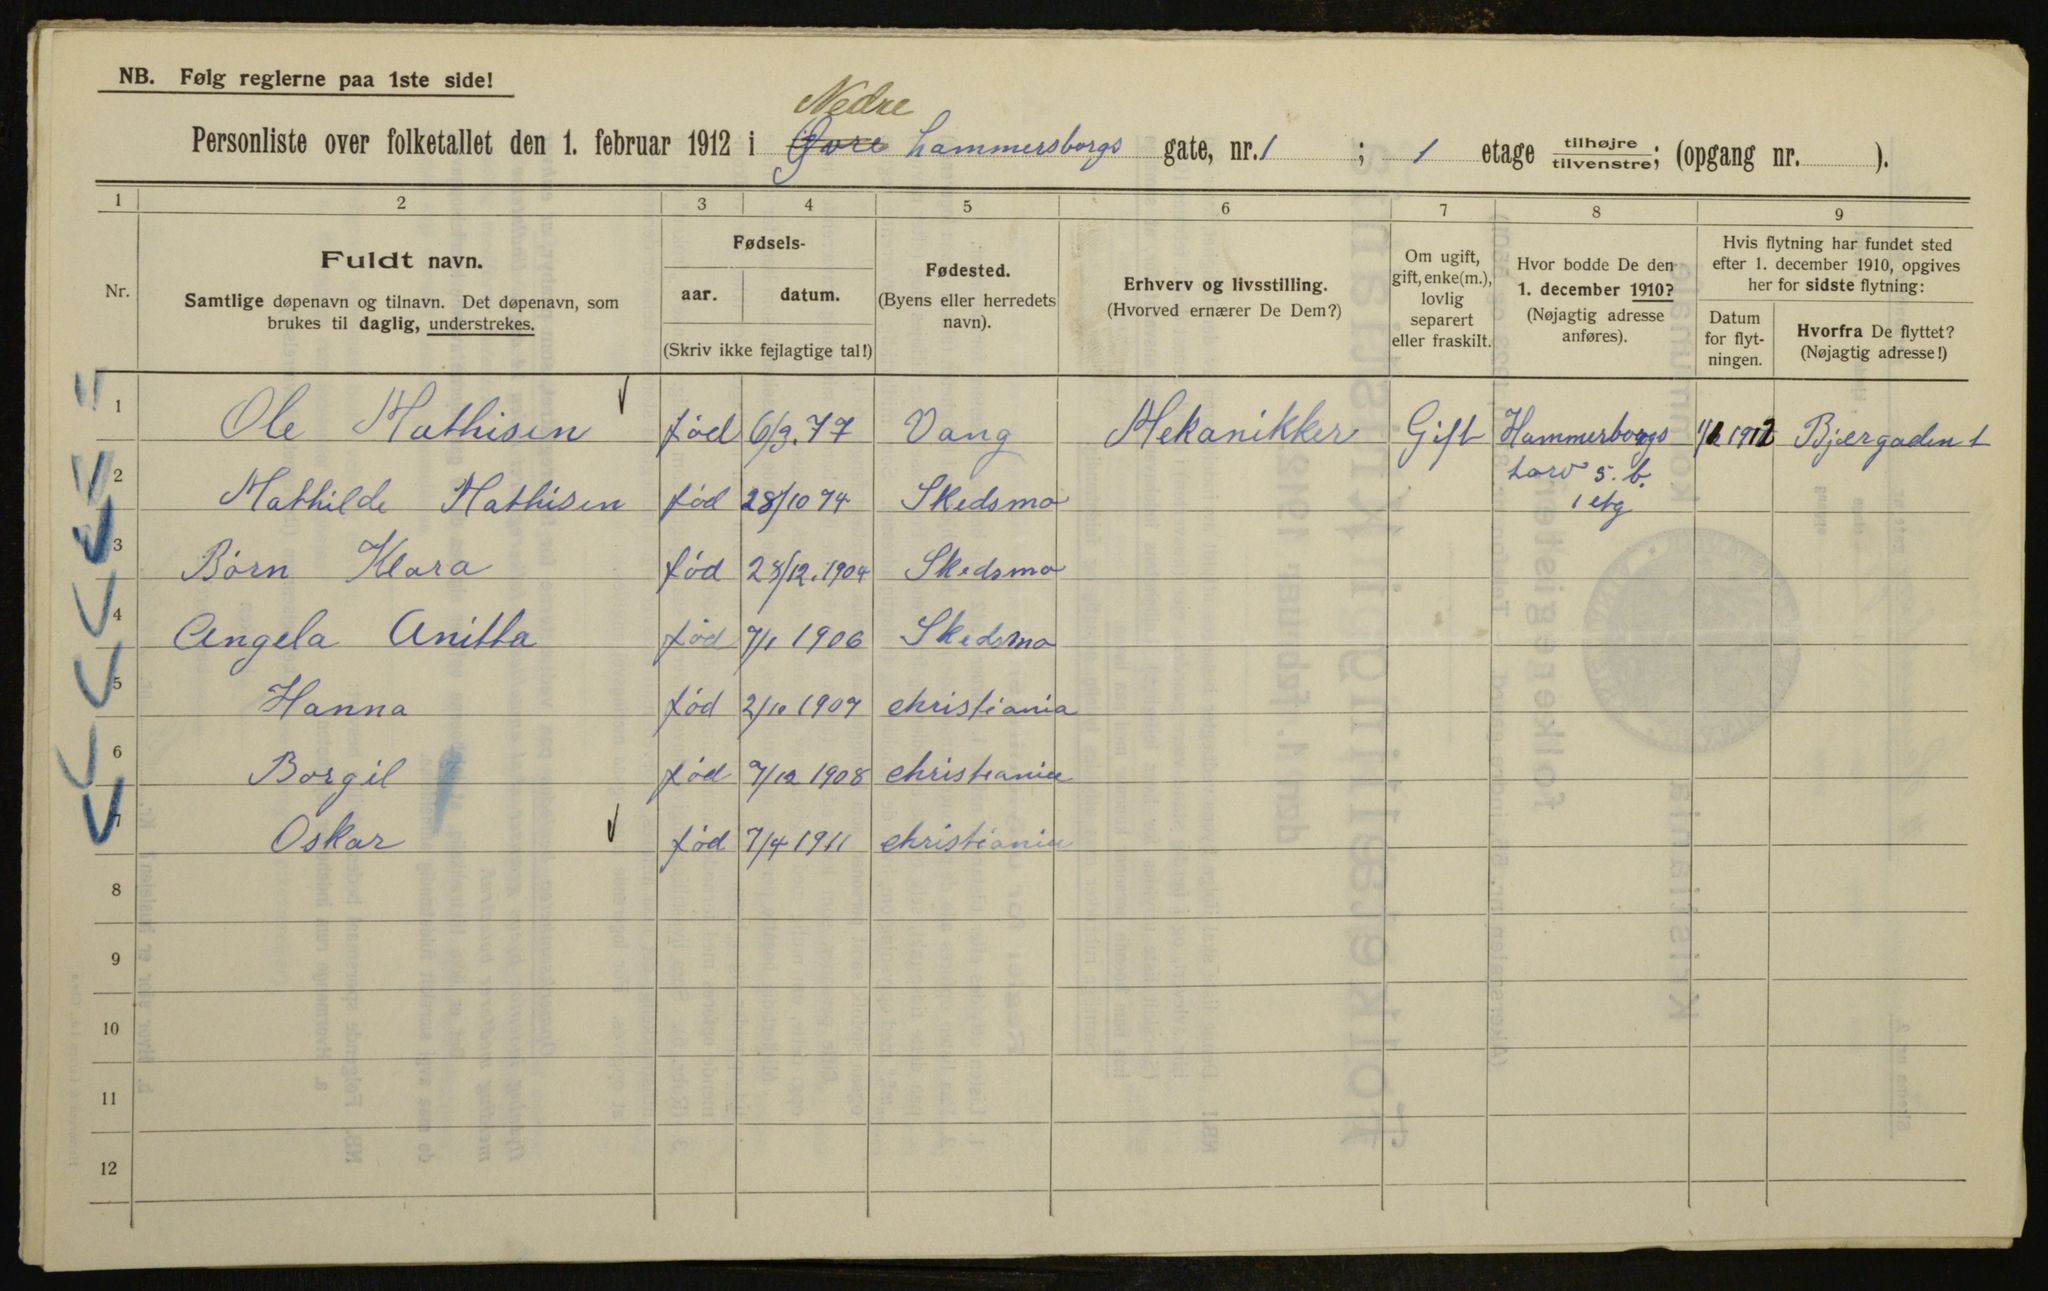 NB. Følg reglerne paa 1ste side!
Nedre
Personliste over folketallet den 1. februar 1912 i Øvre hammersborgs gate, nr. 1 ; 1 etage tilhøjre tilvenstre; (opgang nr. ).
1 2 3 4 5 6 7 8 9
Nr.
Fuldt navn.
Samtlige døpenavn og tilnavn. Det døpenavn, som
brukes til daglig, understrekes.
Fødsels-
aar. datum.
(Skriv ikke fejlagtige tal!)
Fødested.
(Byens eller herredets
navn).
Erhverv og livsstilling.
(Hvorved ernærer De Dem?)
Om ugift,
gift, enke(m.),
lovlig
separert
eller fraskilt.
Hvor bodde De den
1. december 1910?
(Nøjagtig adresse
anføres).
Hvis flytning har fundet sted
efter 1. december 1910, opgives
her for sidste flytning:
Datum
for flyt-
ningen.
Hvorfra De flyttet?
(Nøjagtig adresse!)
1 Ole Mathisen fød 6/3. 77 Vang Mekanikker Gift Hammerborgs 1912 Bjergaden 1
torv 5. b.
1 etg
2 Mathilde Mathisen fød 28/10 74 Skedsmo
3 Børn Klara fød 28/12. 1904 Skedsmo
4 Angela Anitta fød 7/1 1906 Skedsmo
5 Hanna fød 2/10 1907 christiania
6 Borgil fød 7/12 1908 christiania
7 Oskar fød 7/4 1911 christiania
8
9
10
11
12